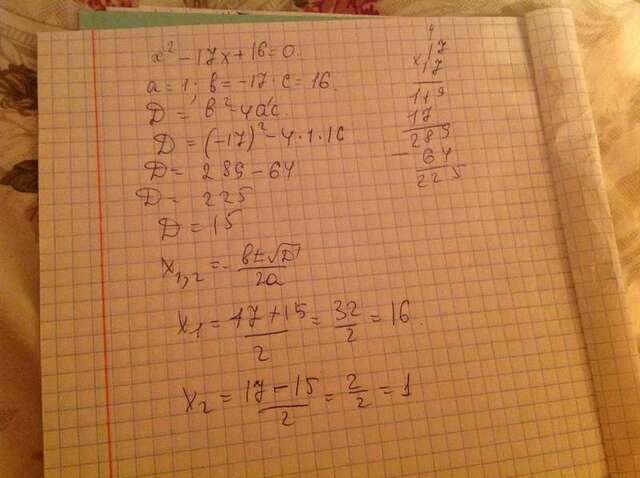 x² - 17x + 16 = 0.
a = 1; b = -17; c = 16.
D = b² - 4ac.
D = (-17)² - 4·1·16
D = 289 - 64
D = 225
D = 15
x₁,₂ = -b±√D / 2a
x₁ = 17+15 / 2 = 32/2 = 16.
x₂ = 17-15 / 2 = 2/2 = 1
4
17
x 17
119
17
289
- 64
225